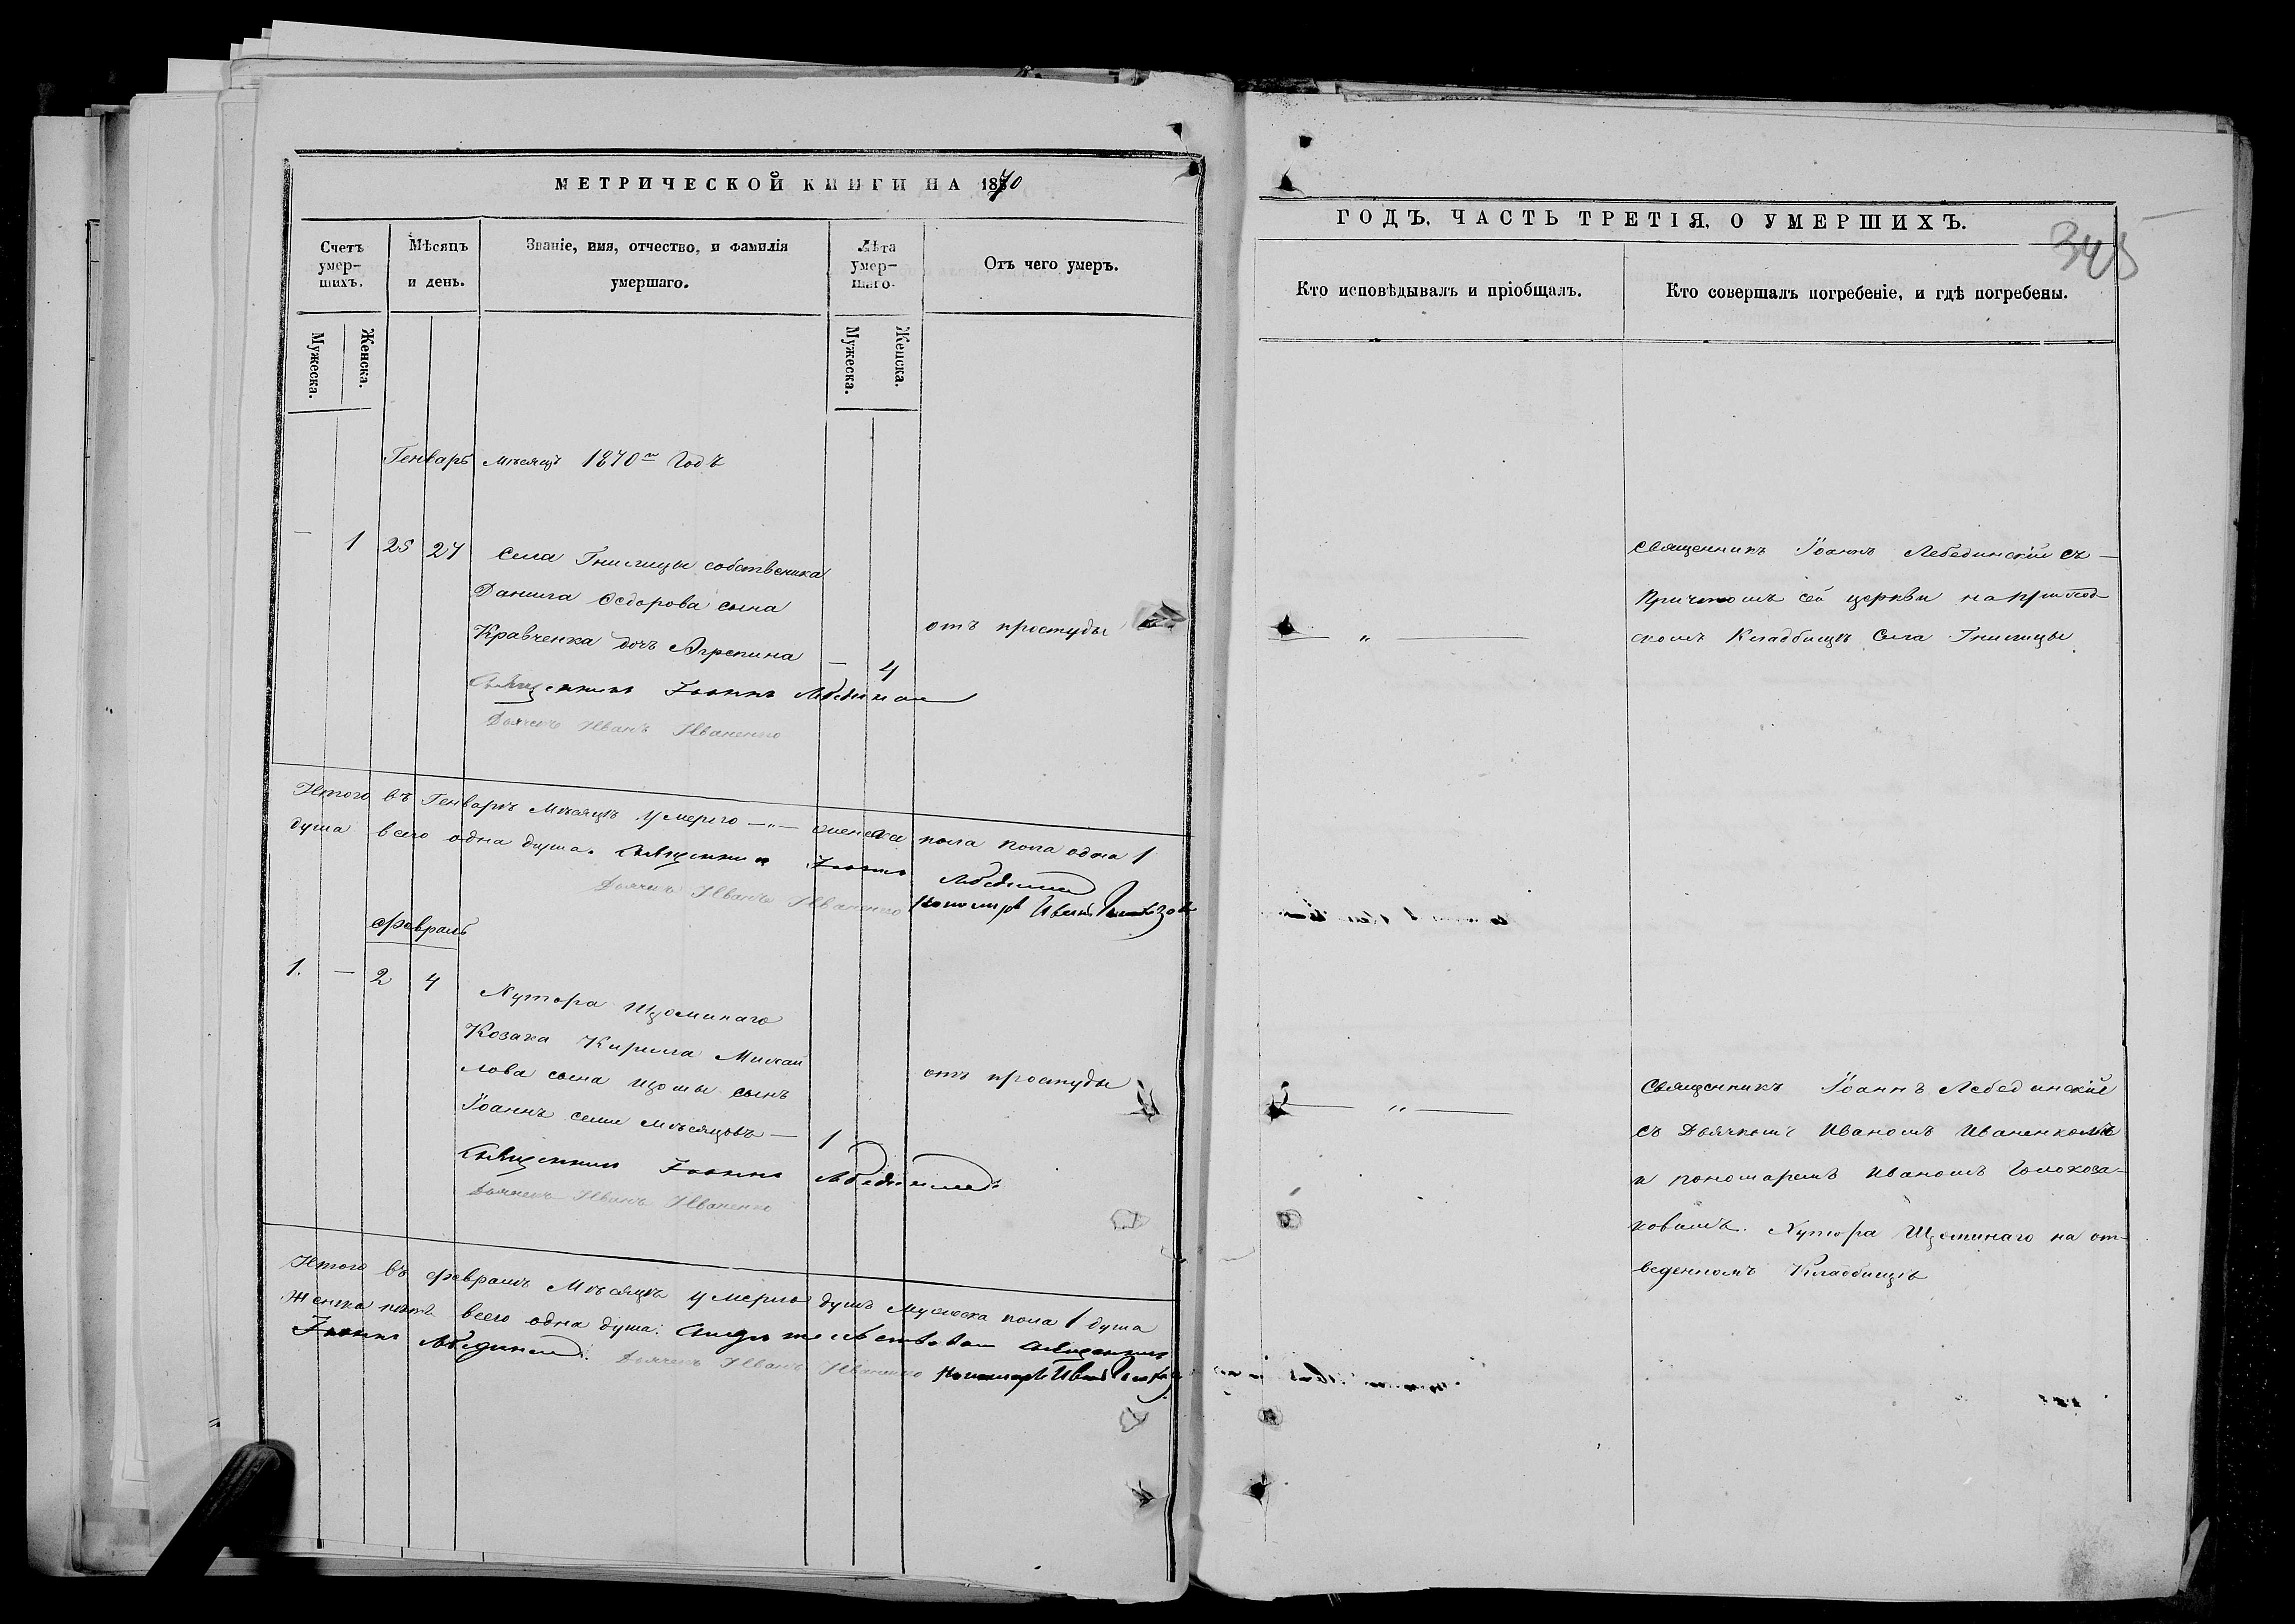 МЕТРИЧЕСКОЙ КНИГИ НА 1870
Счетъ умер-шихъ.
Мѣсяцъ и день.
Званіе, имя, отчество, и фамилія умершаго.
Лѣта умер-шаго.
Отъ чего умеръ.
Мужеска.
Женска.
Мужеска.
Женска.
Генварь мѣсяцъ 1870 Годъ
— 1 25 27 Села Гнилицы собственика
Данила Ѳедорова сына
Кравченка дочь Агрепина — 4
отъ простуды
Священникъ Іоаннъ Лебединскій
Дьячекъ Иванъ Иваненко
Итого въ Генварѣ Мѣсяцѣ умерло —„— женска пола пола одна 1
душа всего одна душа. Священникъ Іоаннъ Лебединскій
Дьячекъ Иванъ Иваненко Пономарь Иванъ
Февраль
1. — 2 4 Хутора Щоминаго
Козака Кирила Михаи
лова сына Щомы сынъ
отъ простуды
Іоаннъ семи мѣсяцовъ — 1
Священникъ Іоаннъ Лебединскій
Дьячекъ Иванъ Иваненко
Итого въ Февралѣ Мѣсяцѣ умерло душъ Мужеска пола 1 душа
Женска нѣтъ всего одна душа. Священникъ
Іоаннъ Лебединскій. Дьячекъ Иванъ Иваненко Пономарь Иванъ
ГОДЪ, ЧАСТЬ ТРЕТІЯ, О УМЕРШИХЪ.
345
Кто исповѣдывалъ и пріобщалъ.
Кто совершалъ погребеніе, и гдѣ погребены.
Священникъ Іоаннъ Лебединскій съ —
Причтомъ сей церкви на приход-
— „ — скомъ Кладбищѣ Села Гнилицы
Священникъ Іоаннъ Лебединскій
— „ — съ Дьячкомъ Иваномъ Иваненкомъ
и пономаремъ Иваномъ Голокоза-
ковымъ. Хутора Щоминаго на от-
веденномъ Кладбищѣ